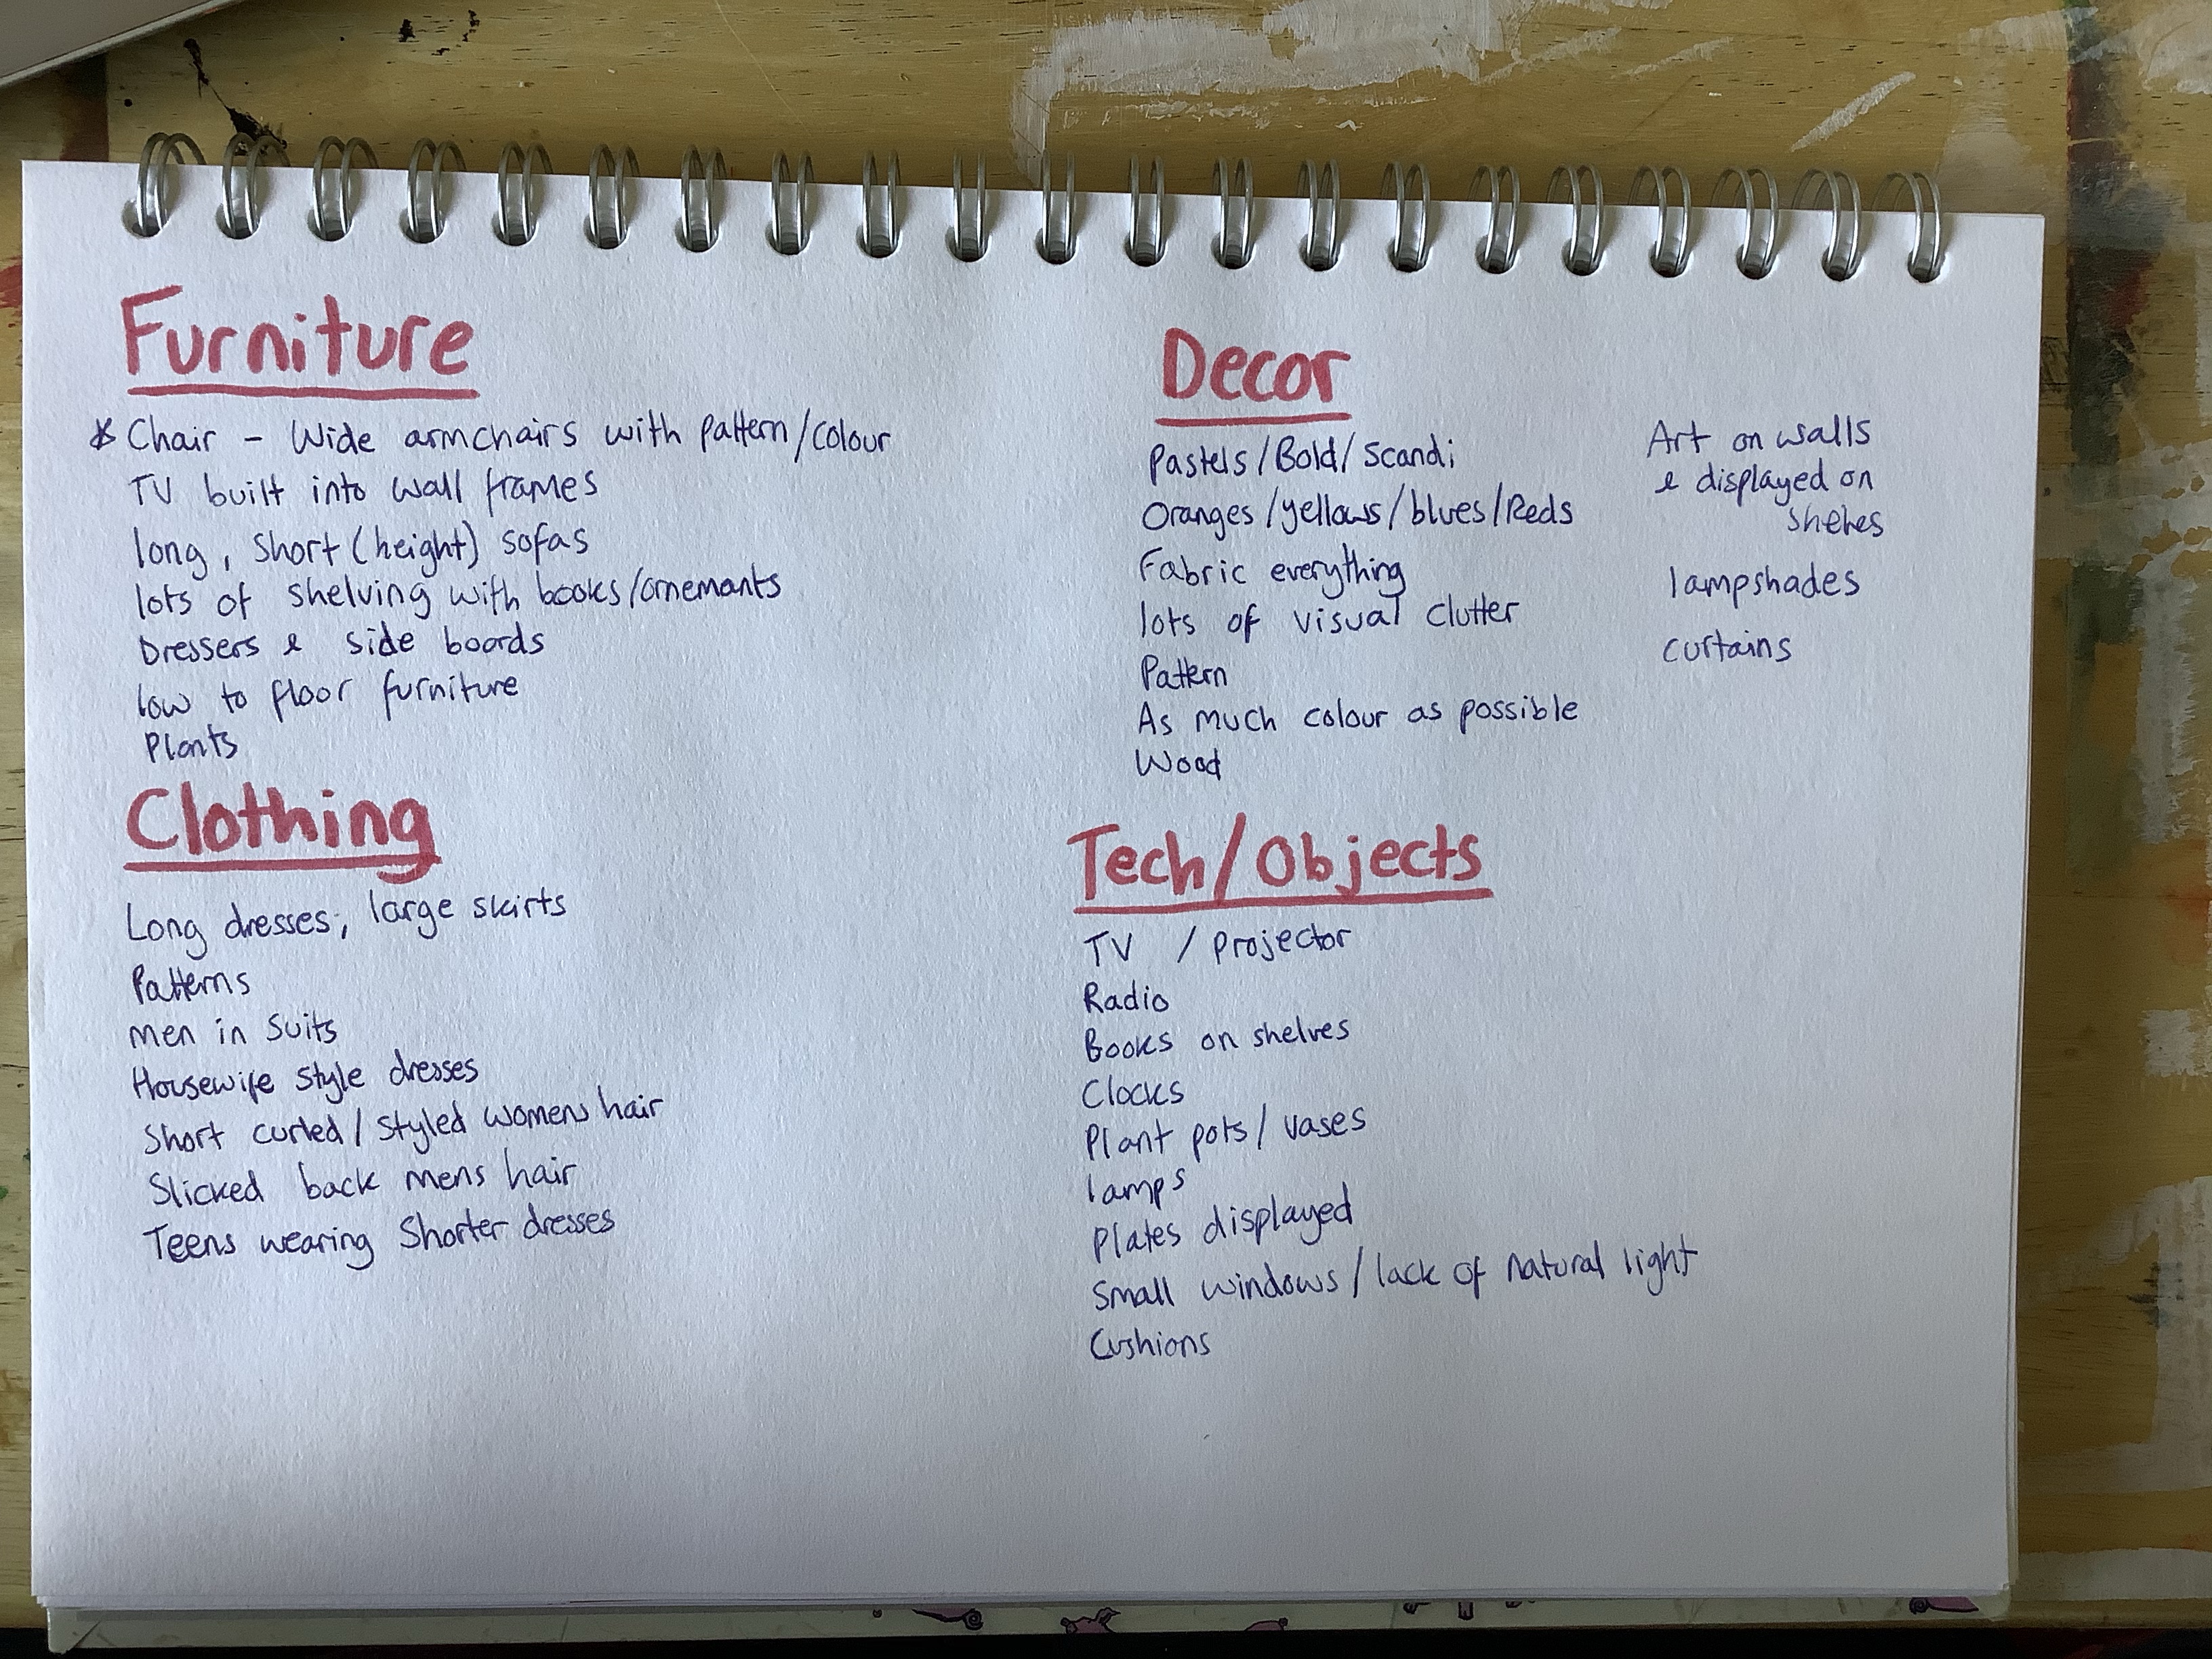 Furniture
* Chair - Wide armchairs with pattern/colour
TV built into wall frames
long, short (height) sofas
lots of shelving with books/ornemants
Dressers & side boards
low to floor furniture
Plants
Clothing
Long dresses, large skirts
Patterns
men in suits
Housewife style dresses
Short curled/styled womens hair
Slicked back mens hair
Teens wearing shorter dresses
Decor
Pastels/Bold/Scandi
Oranges/yellows/blues/Reds
Fabric everything
lots of visual clutter
Pattern
As much colour as possible
Wood
Art on walls
& displayed on
shelves
lampshades
curtains
Tech/Objects
TV / projector
Radio
Books on shelves
Clocks
Plant pots/vases
lamps
Plates displayed
Small windows/lack of natural light
Cushions